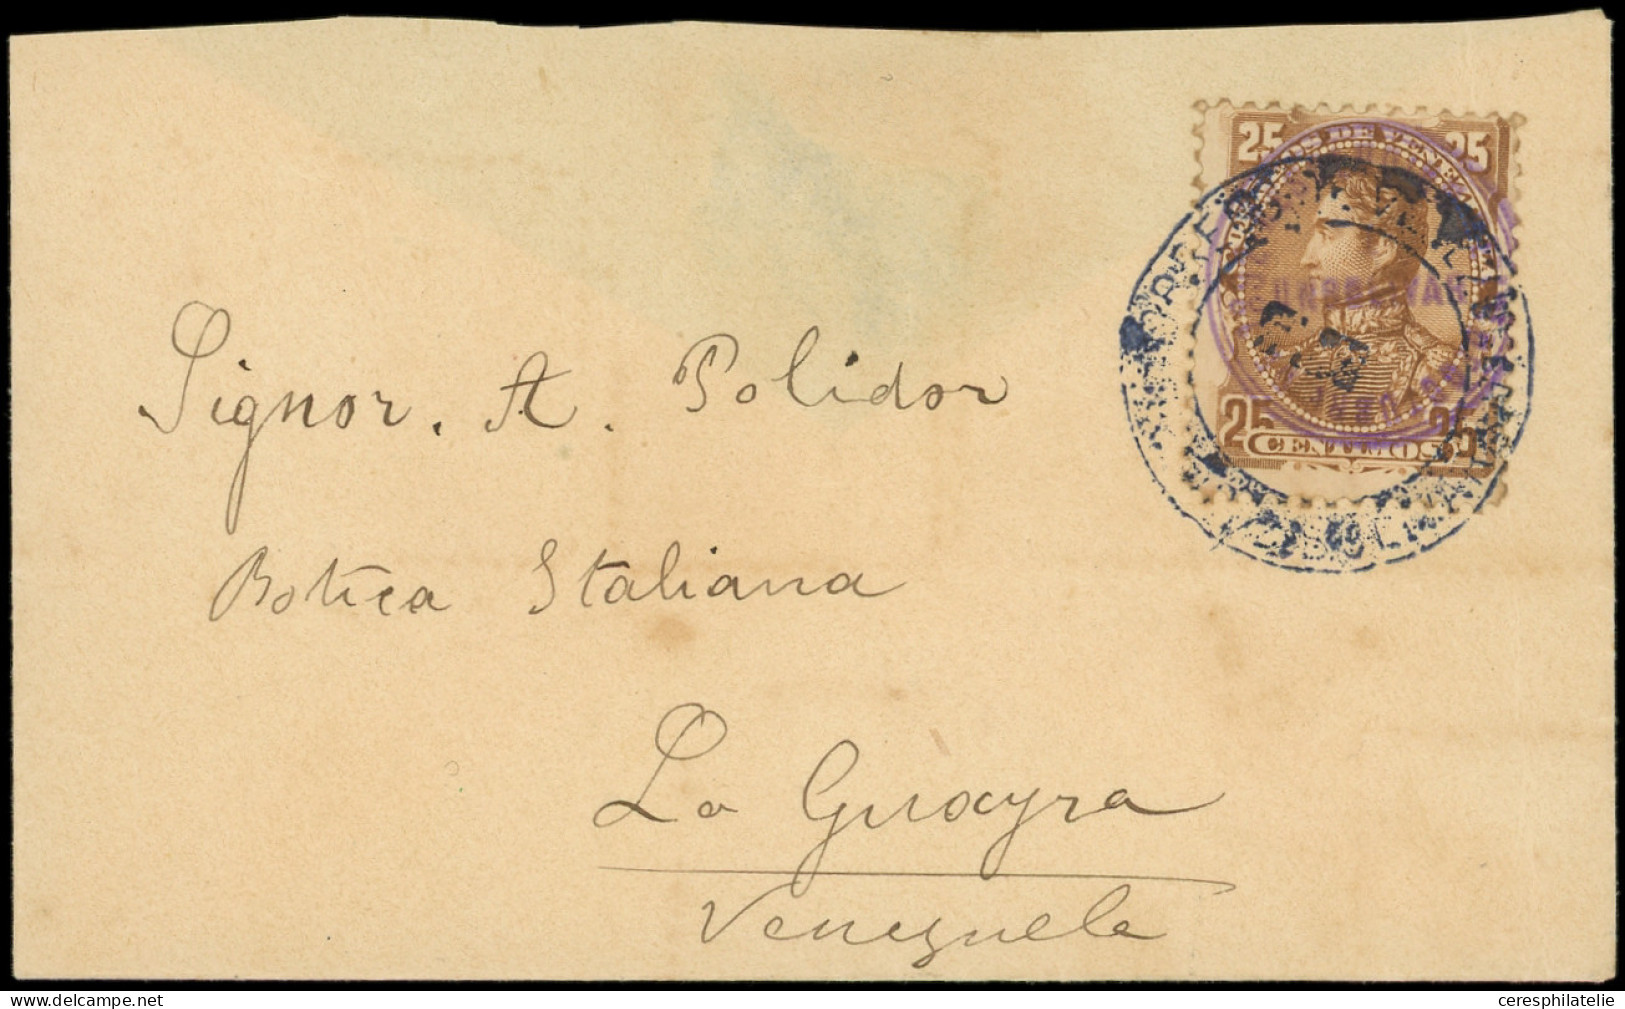 25 25
DE VENEZ
25 25
CENTIMOS
Signor. A. Polidor
Botica Italiana
La Guayra
Venezuela
www.delcampe.net
ceresphilatelie